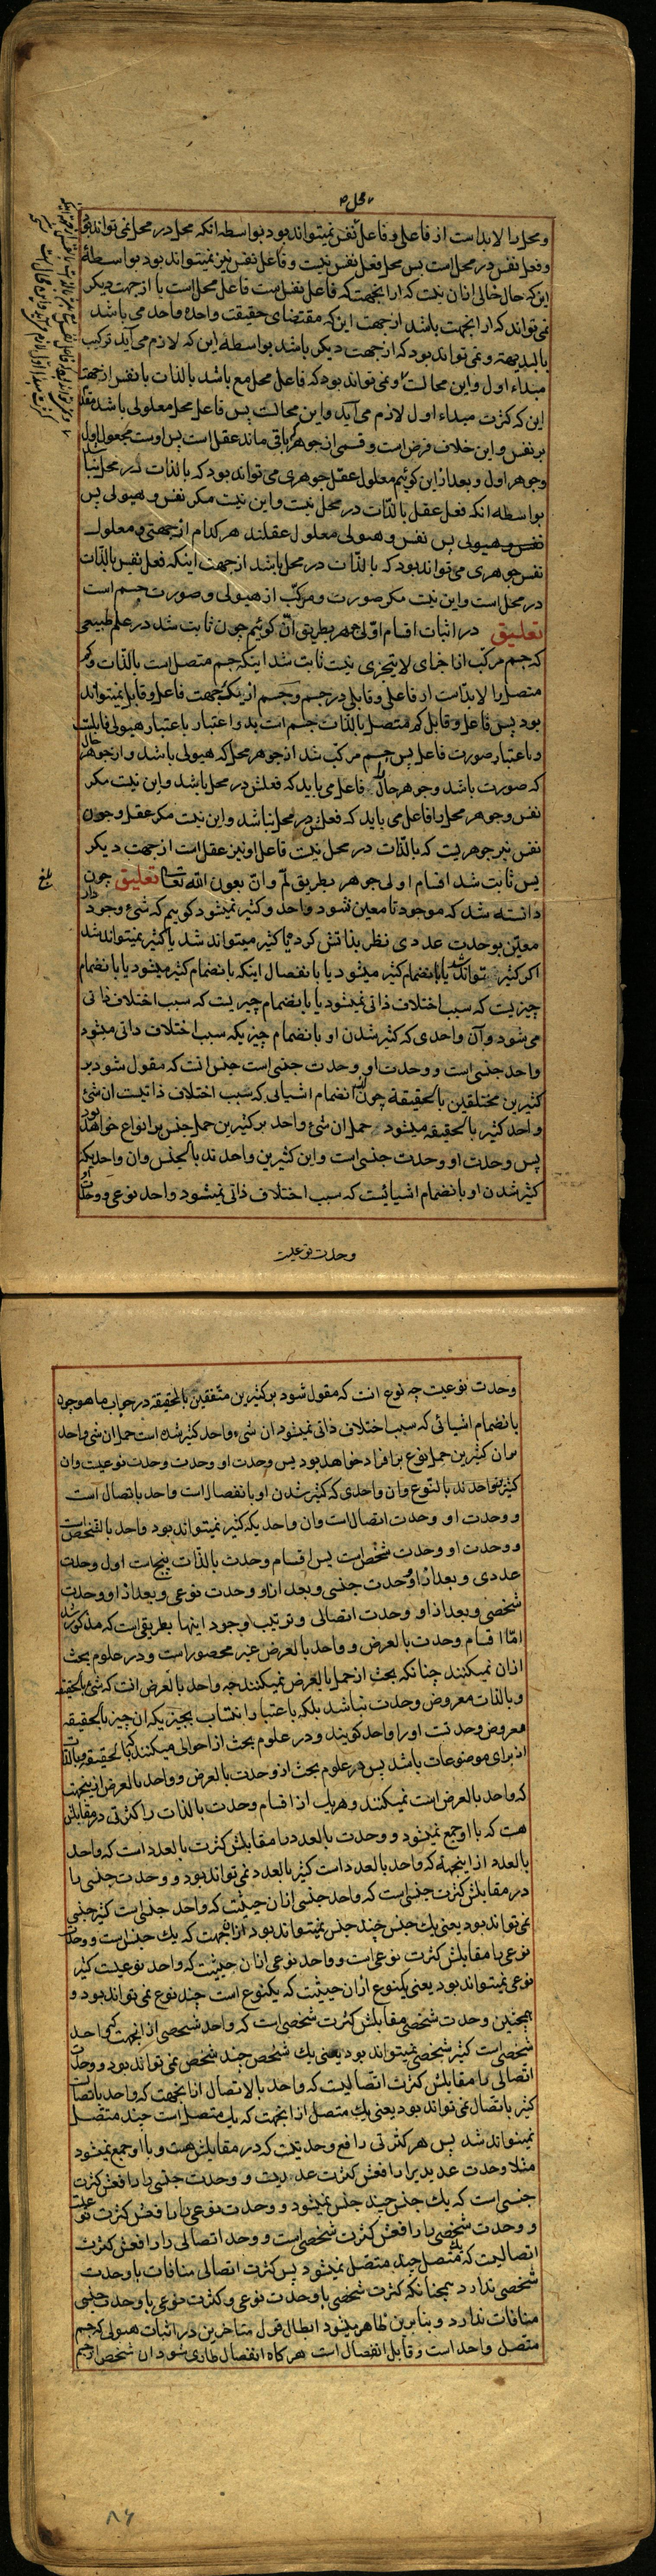 و محل را لابداست از فاعلی و فاعل نفس نمیتواند بود بواسطه انکه محل در محل نمی تواند بود
و فعل نفس در محل است پس محل فعل نفس نیت و فاعل نفس نیز نمیتواند بود بواسطهٔ
این که حال خالی ازان نیت که از انجهت که فاعل نفس است فاعل محل است یا از جهت دیکر
نمی تواند که از انجهت باشد از جهت این که مقتضای حقیقت واحده واحد می باشد
بالبدیهه و نمی تواند بود که از جهت دیکر باشد بواسطه این که لازم می آید ترکیب
مبداء اول و این محالت و نمی تواند بود که فاعل محل مع باشد بالذات با نفس از جهت
این که کثرت مبداء اول لازم می آید و این محالت پس فاعل محل معلولی باشد مقدم
بر نفس و این خلاف فرض است و قسمی از جوهر که باقی ماند عقل است پس اوست مجعول اول
و جوهر اول و بعد ازین کوئیم معلول عقل جوهری می تواند بود که بالذات در محل نباشد
بواسطه انکه فعل عقل بالذات در محل نیت و این نیت مکر نفس و هیولی پس
نفس و هیولی پس نفس و هیولی معلول عقلند هر کدام از جهتی و معلول
نفس جوهری می تواند بود که بالذات در محل باشد از جهت اینکه فعل نفس بالذات
در محل است و این نیت مکر صورت و مرکب از هیولی و صورت جسم است
تعلیق در اثبات اقسام اولی جوهر بطریق انّ کوئیم چون ثابت شد در علم طبیعی
که جسم مرکب از اجزای لایتجزی نیت ثابت شد اینکه جسم متصل است بالذات و هر
متصل را لابداست از فاعلی و قابلی در جسم و جسم از یک جهت فاعل و قابل نمیتواند
بود پس فاعل و قابل که متصل بالذات جسم است بدو اعتبار باعتبار هیولی قابلیت
و باعتبار صورت فاعل پس جسم مرکب شد از جوهر محل که هیولی باشد و از جوهر حال
که صورت باشد و جوهر حال را فاعل می باید که فعلش در محل باشد و این نیت مکر
نفس و جوهر محل را فاعل می باید که فعلش در محل نباشد و این نیت مکر عقل و چون
نفس نیز جوهریت که بالذات در محل نیت فاعل او نیز عقل است از جهت دیکر
پس ثابت شد اقسام اولی جوهر بطریق لمّ و انّ بعون الله تعالی تعلیق چون
دانسته شد که موجود تا معین نشود واحد و کثیر نمیشود کوییم که شئ وجود دار
معین بوحدت عددی نظر بذاتش کرده یا کثیر میتواند شد یا کثیر نمیتواند شد
اکر کثیر تواند شد یا بانضمام کثیر میشود یا بانفصال اینکه بانضمام کثیر میشود یا بانضمام
چیزیت که سبب اختلاف ذاتی نمیشود یا بانضمام چیزیت که سبب اختلاف ذاتی
می شود و آن واحدی که کثیر شدن او بانضمام چیزیکه سبب اختلاف ذاتی میشود
واحد جنسی است و وحدت او وحدت جنسی است جنس انت که مقول شود بر
کثیرین مختلفین بالحقیقة چون انضمام اشیائی که سبب اختلاف ذاتیت ان شئ
واحد کثیر بالحقیقه میشود حمل ان شئ واحد بر کثیرین حمل جنس بر انواع خواهد بود
پس وحدت او وحدت جنسی است و این کثیرین واحدند بالجنس و ان واحدیکه
کثیر شدن او بانضمام اشیائیت که سبب اختلاف ذاتی نمیشود واحد نوعی و وحدت او
وحدت نوعیت
وحدت نوعیت چه نوع انت که مقول شود بر کثیرین متفقین بالحقیقه در جواب ما هو چون
بانضمام اشیائی که سبب اختلاف ذاتی نمیشود ان شیء واحد کثیر شده است حمل ان شی واحد
بر ان کثیرین حمل نوع بر افراد خواهد بود پس وحدت او وحدت وحدت نوعیت و ان
کثیرین واحدند بالنوع و ان واحدی که کثیر شدن او بانفصال است واحد باتصال است
و وحدت او وحدت اتصال است و ان واحد یکه کثیر نمیتواند بود واحد بالشخص است
و وحدت او وحدت شخص است پس اقسام وحدت بالذات پنج است اول وحدت
عددی و بعد از او وحدت جنسی و بعد از او وحدت نوعی و بعد از او وحدت
شخصی و بعد از او وحدت اتصالی و ترتیب وجود اینها بطریقی است که مذکور شد
امّا اقسام وحدت بالعرض و واحد بالعرض غیر محصور است و در علوم بحث
ازان نمیکنند چنانکه بحث از حمل بالعرض نمیکنند چه واحد بالعرض انت که شئ بالحقیقه
و بالذات معروض وحدت نباشد بلکه باعتبار انتساب بچیزیکه ان چیز بالحقیقه
معروض وحدتت او را واحد کویند و در علوم بحث از احوالی میکنند که بالحقیقه و بالذات
از برای موضوعات باشد پس در علوم بحث از وحدت بالعرض و واحد بالعرض از اینجهت
که واحد بالعرض است نمیکنند و هر یک از اقسام وحدت بالذات را کثرتی در مقابلش
هست که با او جمع نمیشود و وحدت بالعدد را مقابلش کثرت بالعدد است که واحد
بالعدد از اینجهة که واحد بالعدد است کثیر بالعدد نمی تواند بود و وحدت جنسی را
در مقابلش کثرت جنسی است که واحد جنسی ازان حیثیت که واحد جنسی است کثیر جنسی
نمی تواند بود یعنی یک جنس چند جنس نمیتواند بود ازانجهت که یک جنس است و وحدت
نوعی را مقابلش کثرت نوعی است و واحد نوعی ازان حیثیت که واحد نوعیت کثیر
نوعی نمیتواند بود یعنی یکنوع ازان حیثیت که یکنوع است چند نوع نمی تواند بود و
همچنین وحدت شخصی مقابلش کثرت شخصی است که واحد شخصی از انجهت که واحد
شخصی است کثیر شخصی نمیتواند بود یعنی یک شخص چند شخص نمی تواند بود و وحدت
اتصالی را مقابلش کثرت اتصالیت که واحد بالاتصال از انجهت که واحد باتصال است
کثیر باتصال نمی تواند بود یعنی یک متصل از انجهت که یک متصل است چند متصل
نمیتواند شد پس هر کثرتی رافع وحدتیت که در مقابلش هست و با او جمع نمیشود
مثلا وحدت عددیرا رافعش کثرت عددیت و وحدت جنسی را رافعش کثرت
جنسی است که یک جنس چند جنس نمیشود و وحدت نوعی را رافعش کثرت نوعیت
و وحدت شخصی را رافعش کثرت شخصی است و وحدت اتصالی را رافعش کثرت
اتصالیت که یک متصل چند متصل نمیشود پس کثرت اتصالی منافات با وحدت
شخصی ندارد همچنانکه کثرت شخصی با وحدت نوعی و کثرت نوعی با وحدت جنسی
منافات ندارد و بنابرین ظاهر میشود ابطال قول متاخرین در اثبات هیولی که جسم
متصل واحد است و قابل انفصال است هر کاه انفصال طاری شود ان شخص از جسم
۸۶